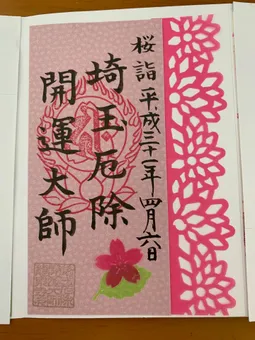 桜詣 平成三十一年四月六日
埼玉厄除
開運大師